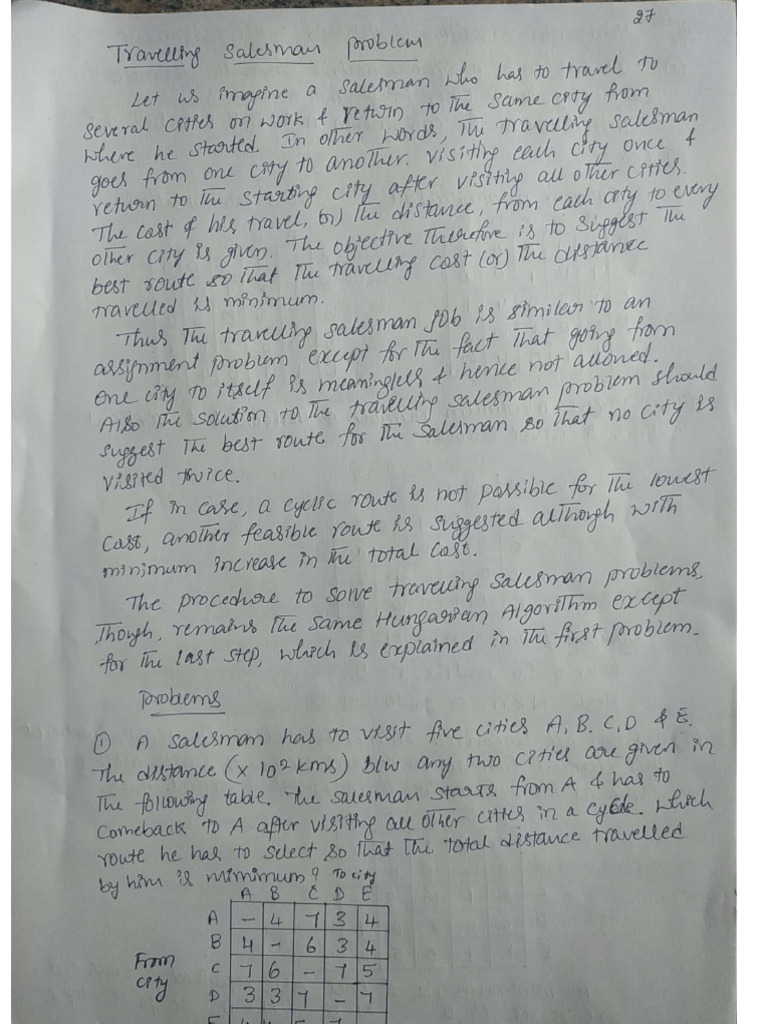 27
Travelling Salesman problem
Let us imagine a salesman who has to travel to
several cities on work & return to the same city from
where he started. In other words, the travelling salesman
goes from one city to another. visiting each city once &
return to the starting city after visiting all other cities.
The cost of his travel, (or) the distance, from each city to every
other city is given. The objective therefore is to suggest the
best route so that the travelling cost (or) the distance
travelled is minimum.
Thus the travelling salesman job is similar to an
assignment problem except for the fact that going from
one city to itself is meaningless & hence not allowed.
Also the solution to the travelling salesman problem should
suggest the best route for the salesman so that no city is
visited twice.
If in case, a cyclic route is not possible for the lowest
cost, another feasible route is suggested although with
minimum increase in the total cost.
The procedure to solve travelling salesman problems,
though, remains the same Hungarian Algorithm except
for the last step, which is explained in the first problem.
Problems
① A salesman has to visit five cities A, B, C, D & E.
The distance (x 10² kms) b/w any two cities are given in
the following table. The salesman starts from A & has to
comeback to A after visiting all other cities in a cycle. which
route he has to select so that the total distance travelled
by him is mimimum? To city
A B C D E
A - 4 7 3 4
B 4 - 6 3 4
From C 7 6 - 7 5
city D 3 3 7 - 7
E 4 4 5 7